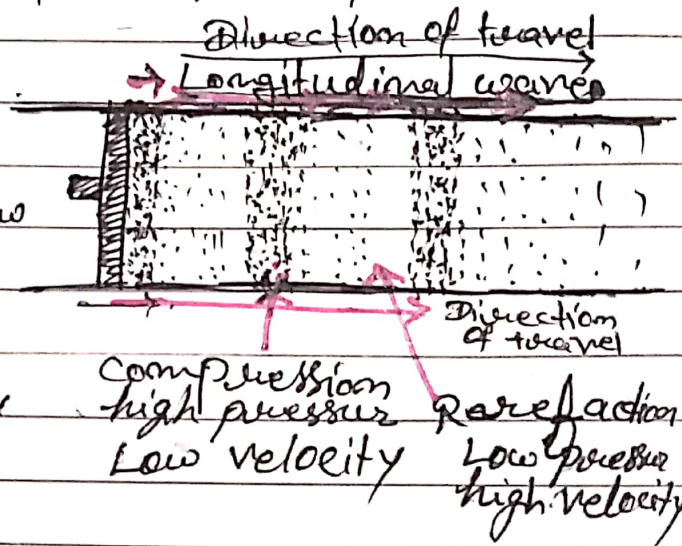 Direction of travel
Longitudinal waves
Direction
of travel
Compression
high pressur
Low velocity
Rarefaction
Low pressur
high velocity